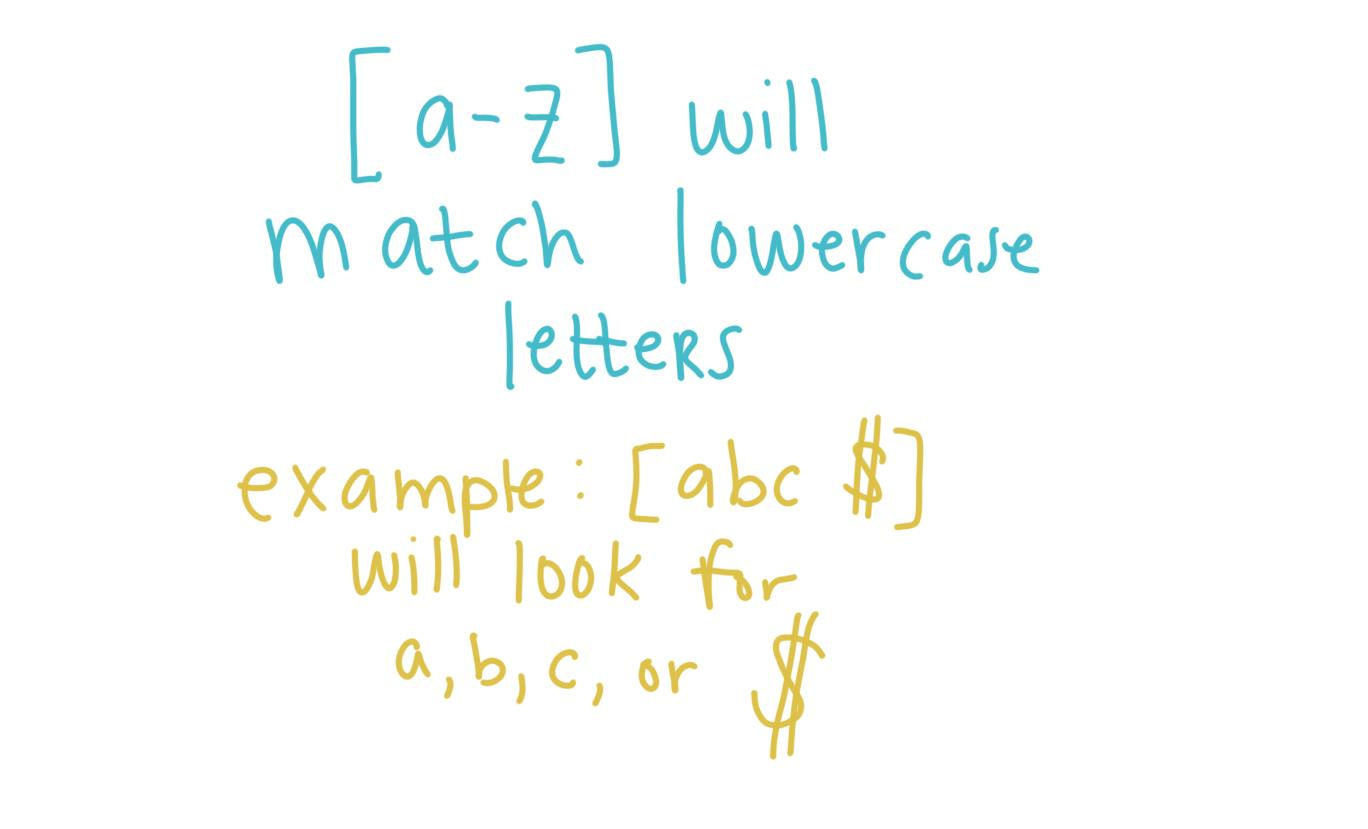 [a-z] will
match lowercase
letters
example: [abc $]
will look for
a, b, c, or $